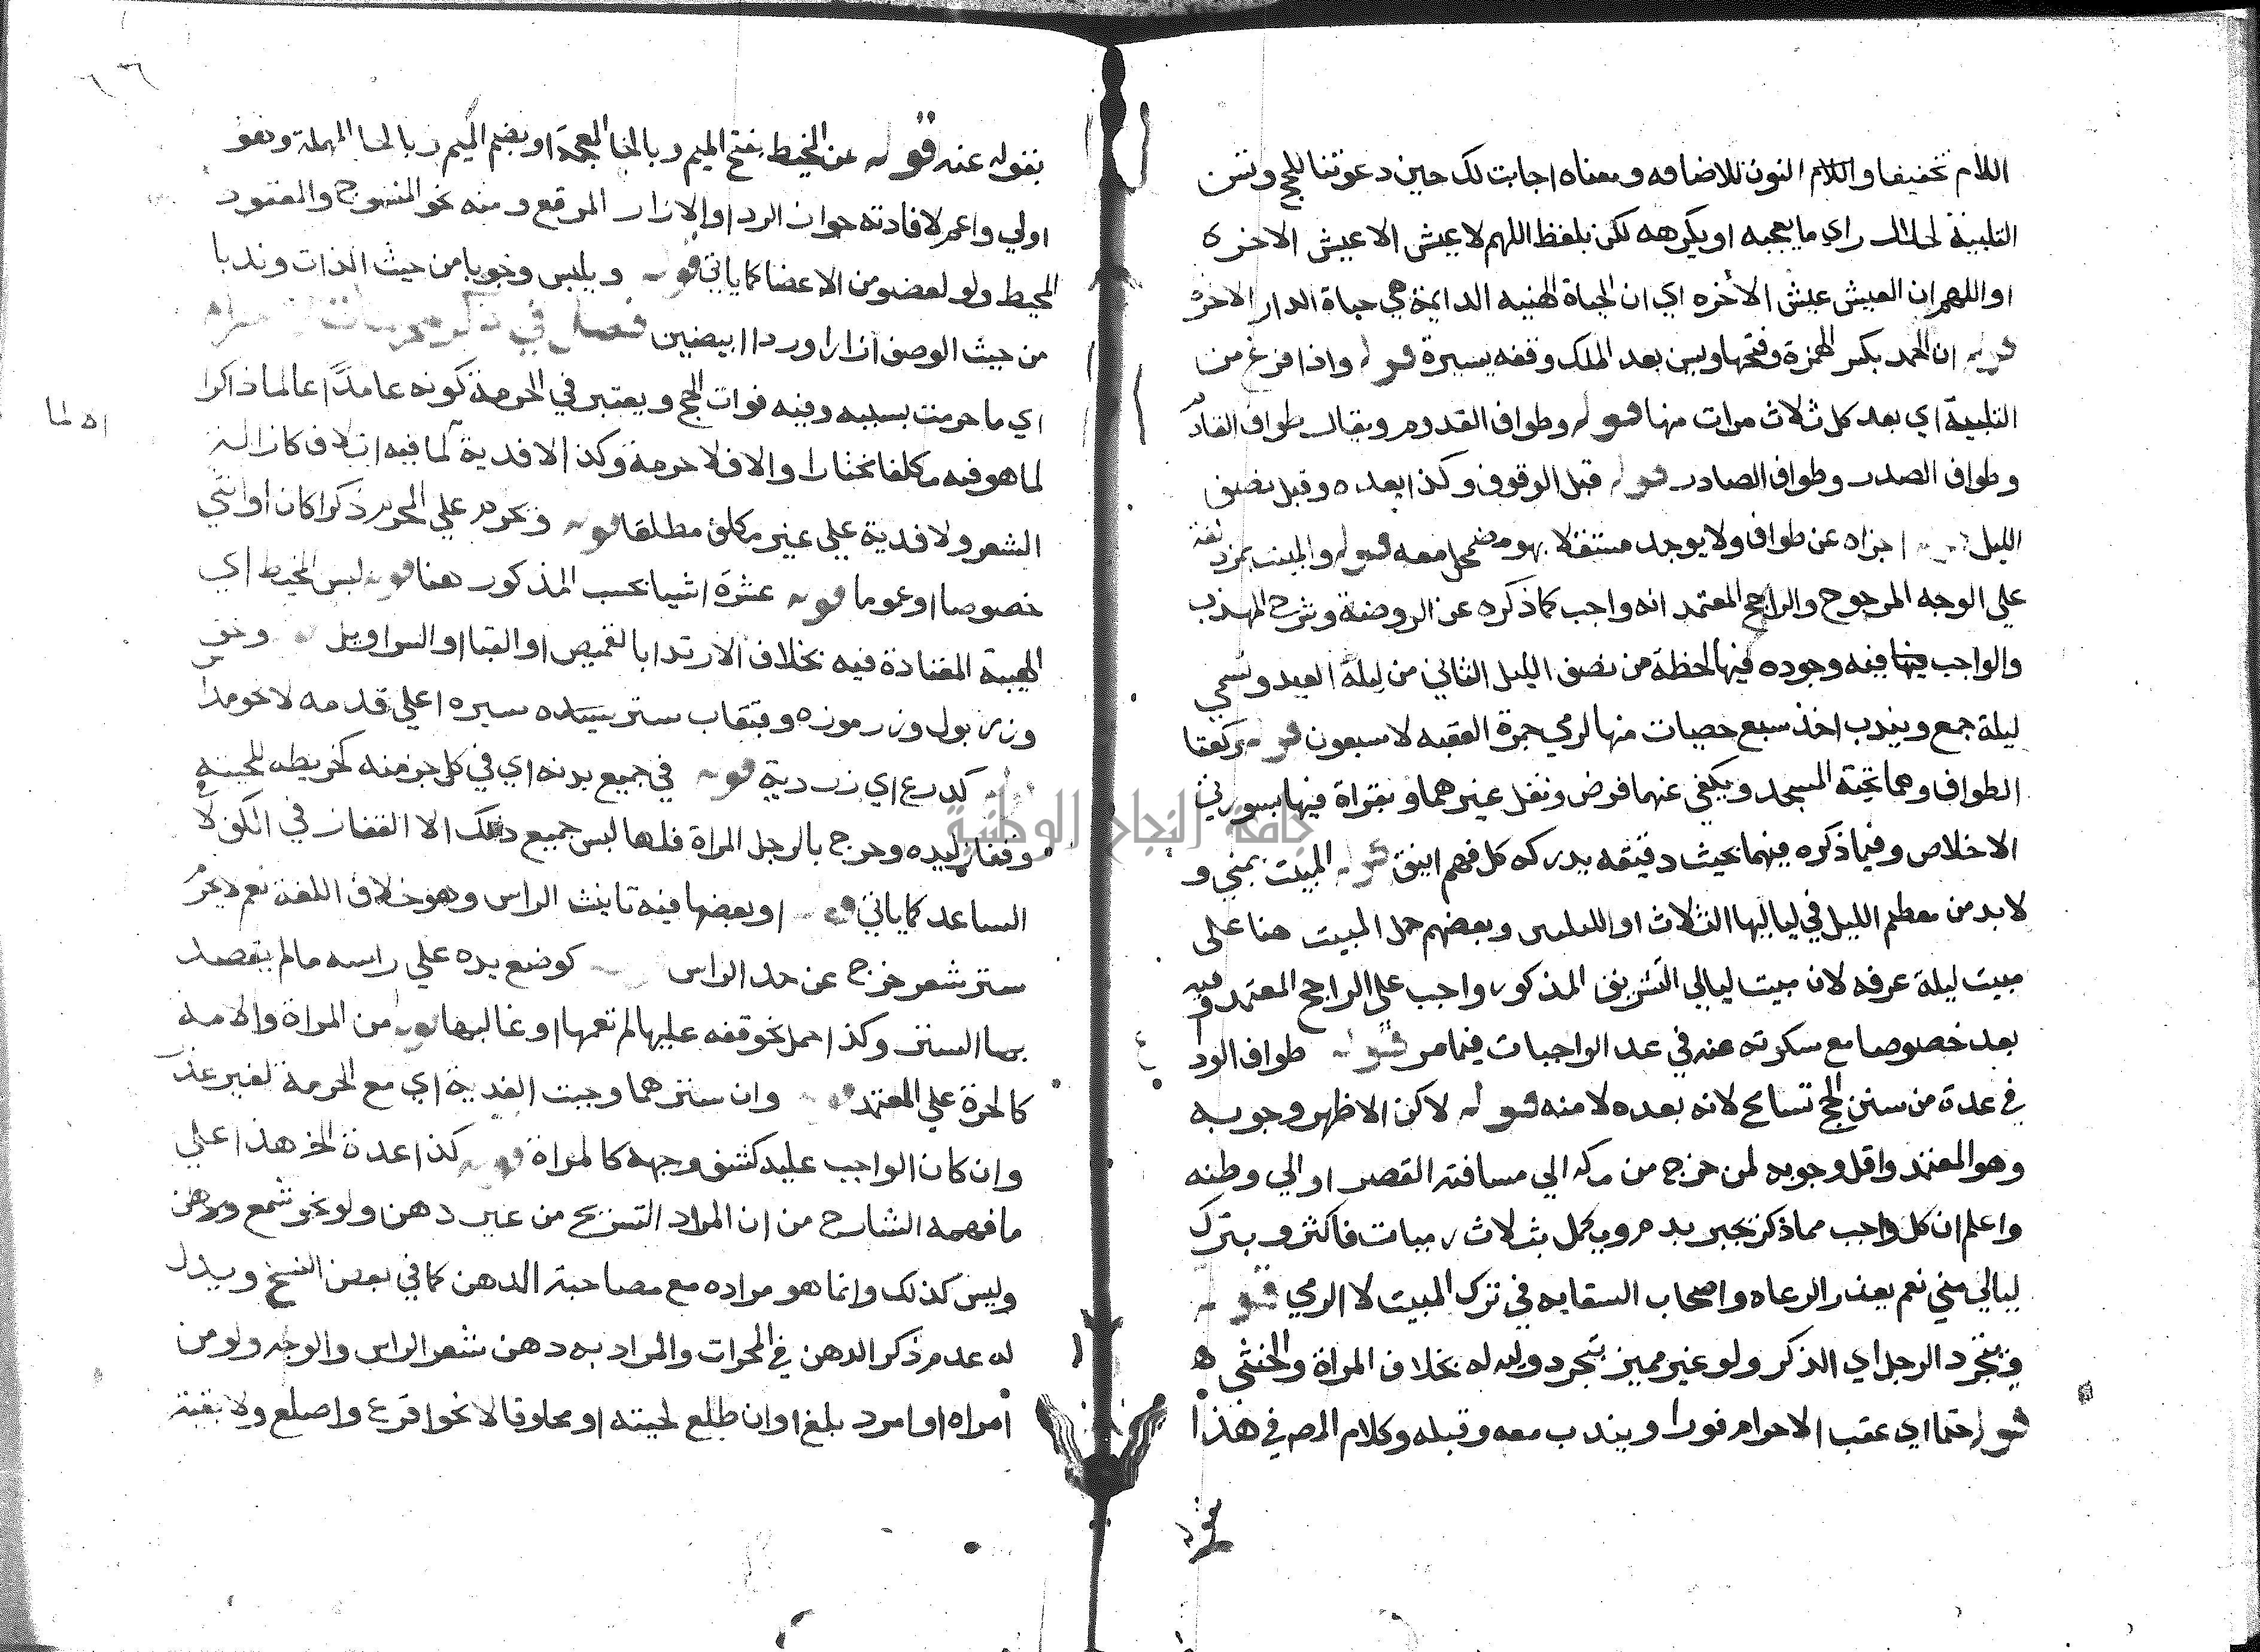 اللام تخفيفا واللام النون للاضافه ومعناه اجابت لك حين دعوتنا للحج وتسن
التلبية لحلال راي ما يعجبه او يكرهه لكن بلفظ اللهم لا عيش الا عيش الاخره
او اللهم ان العيش عيش الاخره اي ان الحياة الهنيه الدايمة هي حياة الدار الاخره
قوله ان الحمد بكسر الهمزة وفتحها ويسن بعد الملك وقفه يسيرة قوله واذا فرغ من
التلبية اي بعد كل ثلاث مرات منها قوله وطواف القدوم ويقال طواف القادم
وطواف الصدر وطواف الصادر قوله قبل الوقوف وكذا بعده وقبل نصف
الليل قوله اجزاه عن طواف ولا يوجد مستقلا بهو مضمحل معه قوله والمبيت بمزدلفة
على الوجه المرجوح والراجح المعتمد انه واجب كما ذكره عن الروضة وشرح المهذب
والواجب فيه وجوده فيها لحظة من نصف الليل الثاني من ليلة العيد وتسمي
ليلة جمع ويندب اخذ سبع حصيات منها لرمي جمرة العقبه لا سبعون قوله ركعتا
الطواف وهما تحية المسجد ويكفي عنهما فرض ونفل غيرهما وبقراة فيها بسورتي
الاخلاص وفيما ذكره فيهما بحيث دقيقه يدركه كل فهم انيق قوله المبيت بمني و
لا بد من معظم الليل في لياليها الثلاث او الليلتين وبعضهم حمل المبيت هنا على
مبيت ليلة عرفه لان مبيت ليالي التشريق المذكور واجب على الراجح المعتمد وفيه
بعد خصوصا مع سكوته عنه في عد الواجبات فيما مر قوله طواف الود
في عدة من سنن الحج تسامح لانه بعده لا منه قوله لاكن الاظهر وجوبه
وهو المعتمد واقل وجوبه لمن خرج من مكه الي مسافة القصر او الي وطنه
واعلم ان كل واجب مما ذكر يجبر بدم ويكمل بثلاث رميات فاكثر وبترك
ليالي مني نعم يعذر الرعاه واصحاب السقايه في ترك المبيت لا الرمي قوله
ويتجرد الرجل اي الذكر ولو غير مميز يتجرد وليه له بخلاف المراة والخنثي
قوله حتما اي عقب الاحرام فورا ويندب معه وقبله وكلام المص في هذا
بقوله
٦٦
بقوله عنه قوله عن المخيط بفتح الميم وبالخا المعجمة او بضم الميم وبالحا المهملة وهو
اولي واعم لافادته جواز الردا والازار المرقع ومنه نحو المنسوج والمعقود
المحيط ولو لعضو من الاعضا كما ياتي قوله ويلبس وجوبا من حيث الذات وندبا
من حيث الوصف ازارا وردا ابيضين فصل في ذكر محرمات الاحرام
اي ما حرمت بسببه وفيه فوات الحج ويعتبر في الحرمة كونه عامدا عالما ذاكرا
لما هو فيه مكلفا مختارا والا فلا حرمة وكذا لا فدية لما فيه اتلاف كازالة
اه لما
الشعر ولا فدية علي غير مكلف مطلقا قوله ويحرم علي المحرم ذكرا كان او انثي
خصوصا او عموما قوله عشرة اشيا بحسب المذكور هنا قوله لبس المخيط اي
الهيئة المعتادة فيه بخلاف الارتدا بالقميص او القبا او السراويل قوله وخف
وزربول وزرموزه وقبقاب ستر سيره اعلي قدمه لا نحو مداس
قوله كدرع اي زردية قوله في جميع بدنه اي في كل جز منه كخريطه للحيته
وقفاز ليده وخرج بالرجل المراة فلها لبس جميع ذلك الا القفاز في الكف لا
الساعد كما ياتي قوله او بعضها فيه تانيث الراس وهو خلاف اللغة نعم لا يحرم
ستر شعر خرج عن حد الراس قوله كوضع يده علي راسه ما لم يقصد
بها الستر وكذا حمل نحو قفه عليها لم تعمها او غالبها قوله من المراة والامة
كالحرة علي المعتمد قوله وان سترهما وجبت الفدية اي مع الحرمة لغير عذر
وان كان الواجب عليه كشف وجهه كالمراة قوله كذا عدة الخ هذا علي
ما فهمه الشارح من ان المراد التسريح من غير دهن ولو نحو شمع ودهن
وليس كذلك وانما هو مراده مع مصاحبة الدهن كما في بعض النسخ ويدل
له عدم ذكر الدهن في المحرمات والمراد به دهن شعر الراس والوجه ولو من
امراه او امرد بلغ اوان طلع لحيته او محلوقا لا نحو اقرع واصلع ولا بقية
جامعة النجاح الوطنية